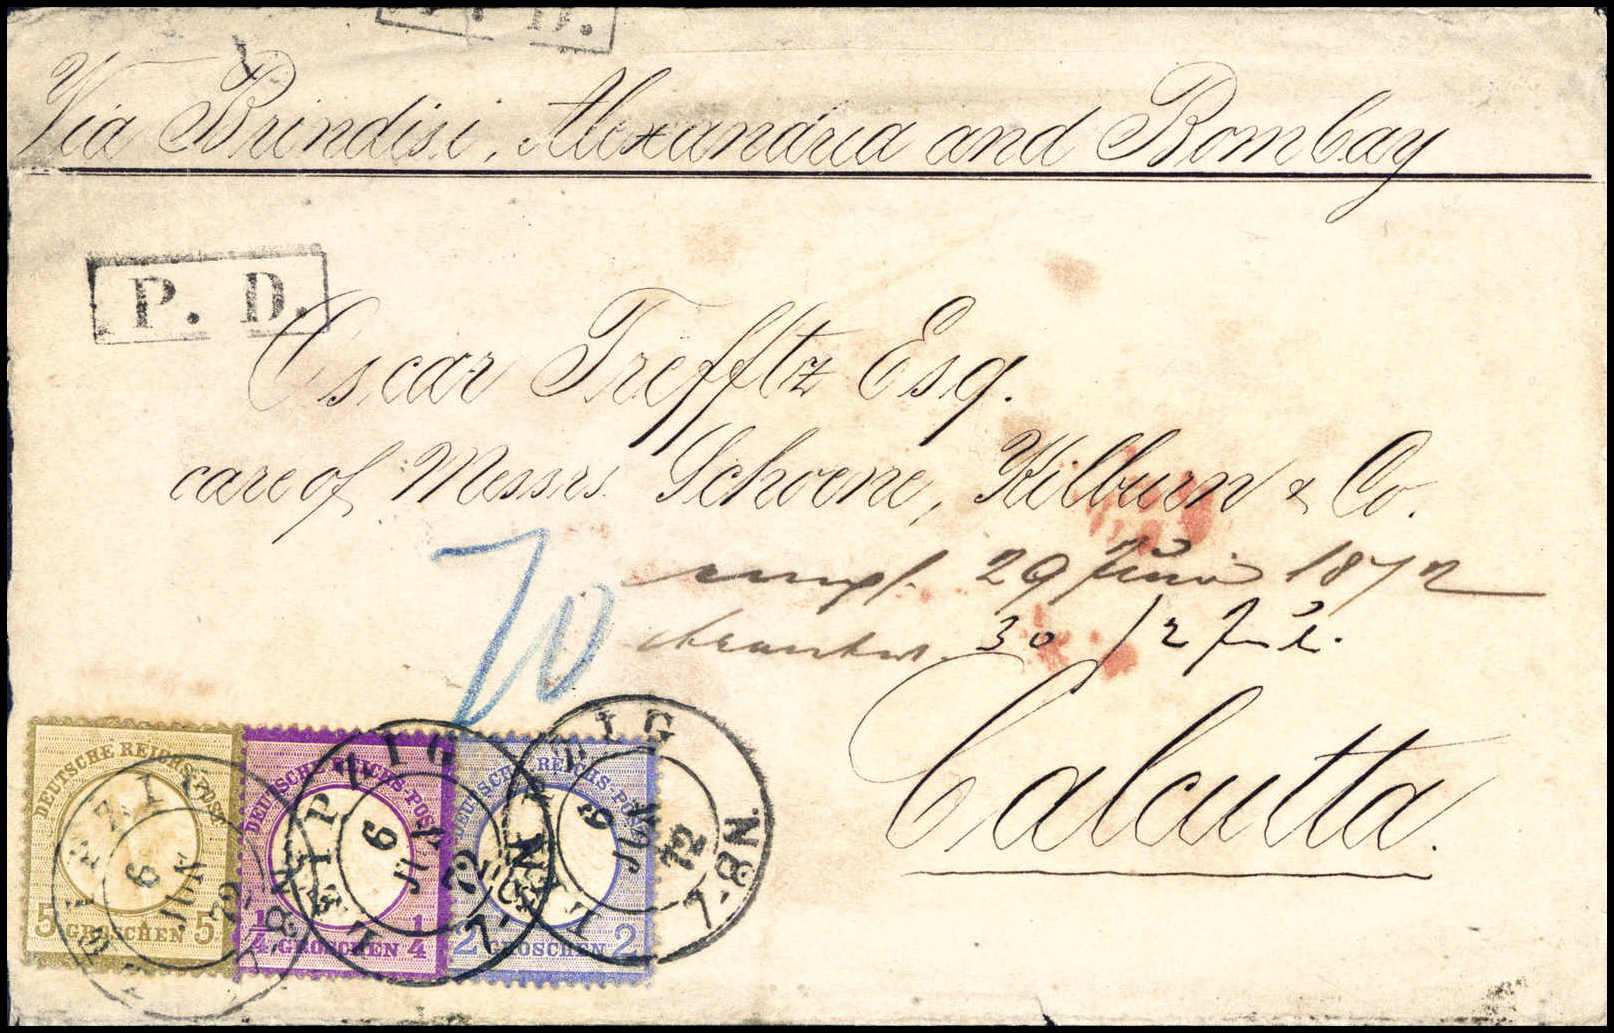 P. D.
Via Brindisi, Alexandria and Bombay
P. D.
Oscar Trefftz Esq.
care of Messrs. Schoene, Kilburn & Co.
70
empf. 29 Juni 1872
30 / 2 Juli.
Calcutta.
DEUTSCHE REICHS-POST
5 GROSCHEN 5
DEUTSCHE REICHS-POST
1/4 GROSCHEN 1/4
DEUTSCHE REICHS-POST
2 GROSCHEN 2
LEIPZIG
6 JUN 72
7-8N.
LEIPZIG
6 JUN 72
7-8N.
LEIPZIG
6 JUN 72
7-8N.